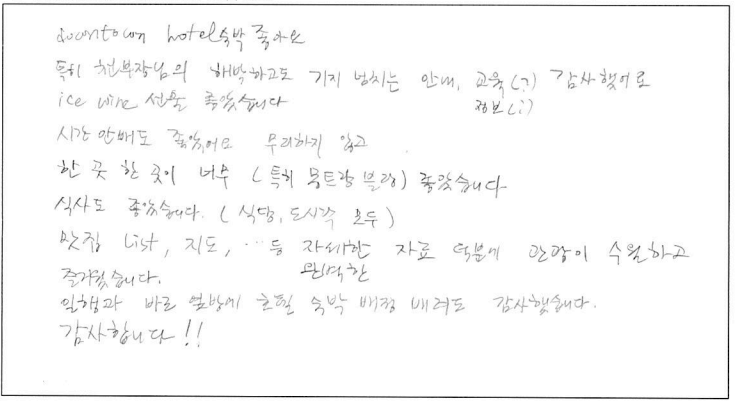 downtown hotel숙박 좋아요
특히 천부장님의 해박하고도 기지 넘치는 안내, 교육(?) 감사했어요
정보(!)
ice wine 선물 좋았습니다
시간 안배도 좋았어요 무리하지 않고
한 곳 한 곳이 너무 (특히 몽트랑 블랑) 좋았습니다
식사도 좋았습니다. (식당, 도시락 모두)
맛집 List, 지도, … 등 자세한 자료 덕분에 관광이 수월하고
완벽한
즐거웠습니다.
일행과 바로 옆방에 호텔 숙박 배정 배려도 감사했습니다.
감사합니다!!